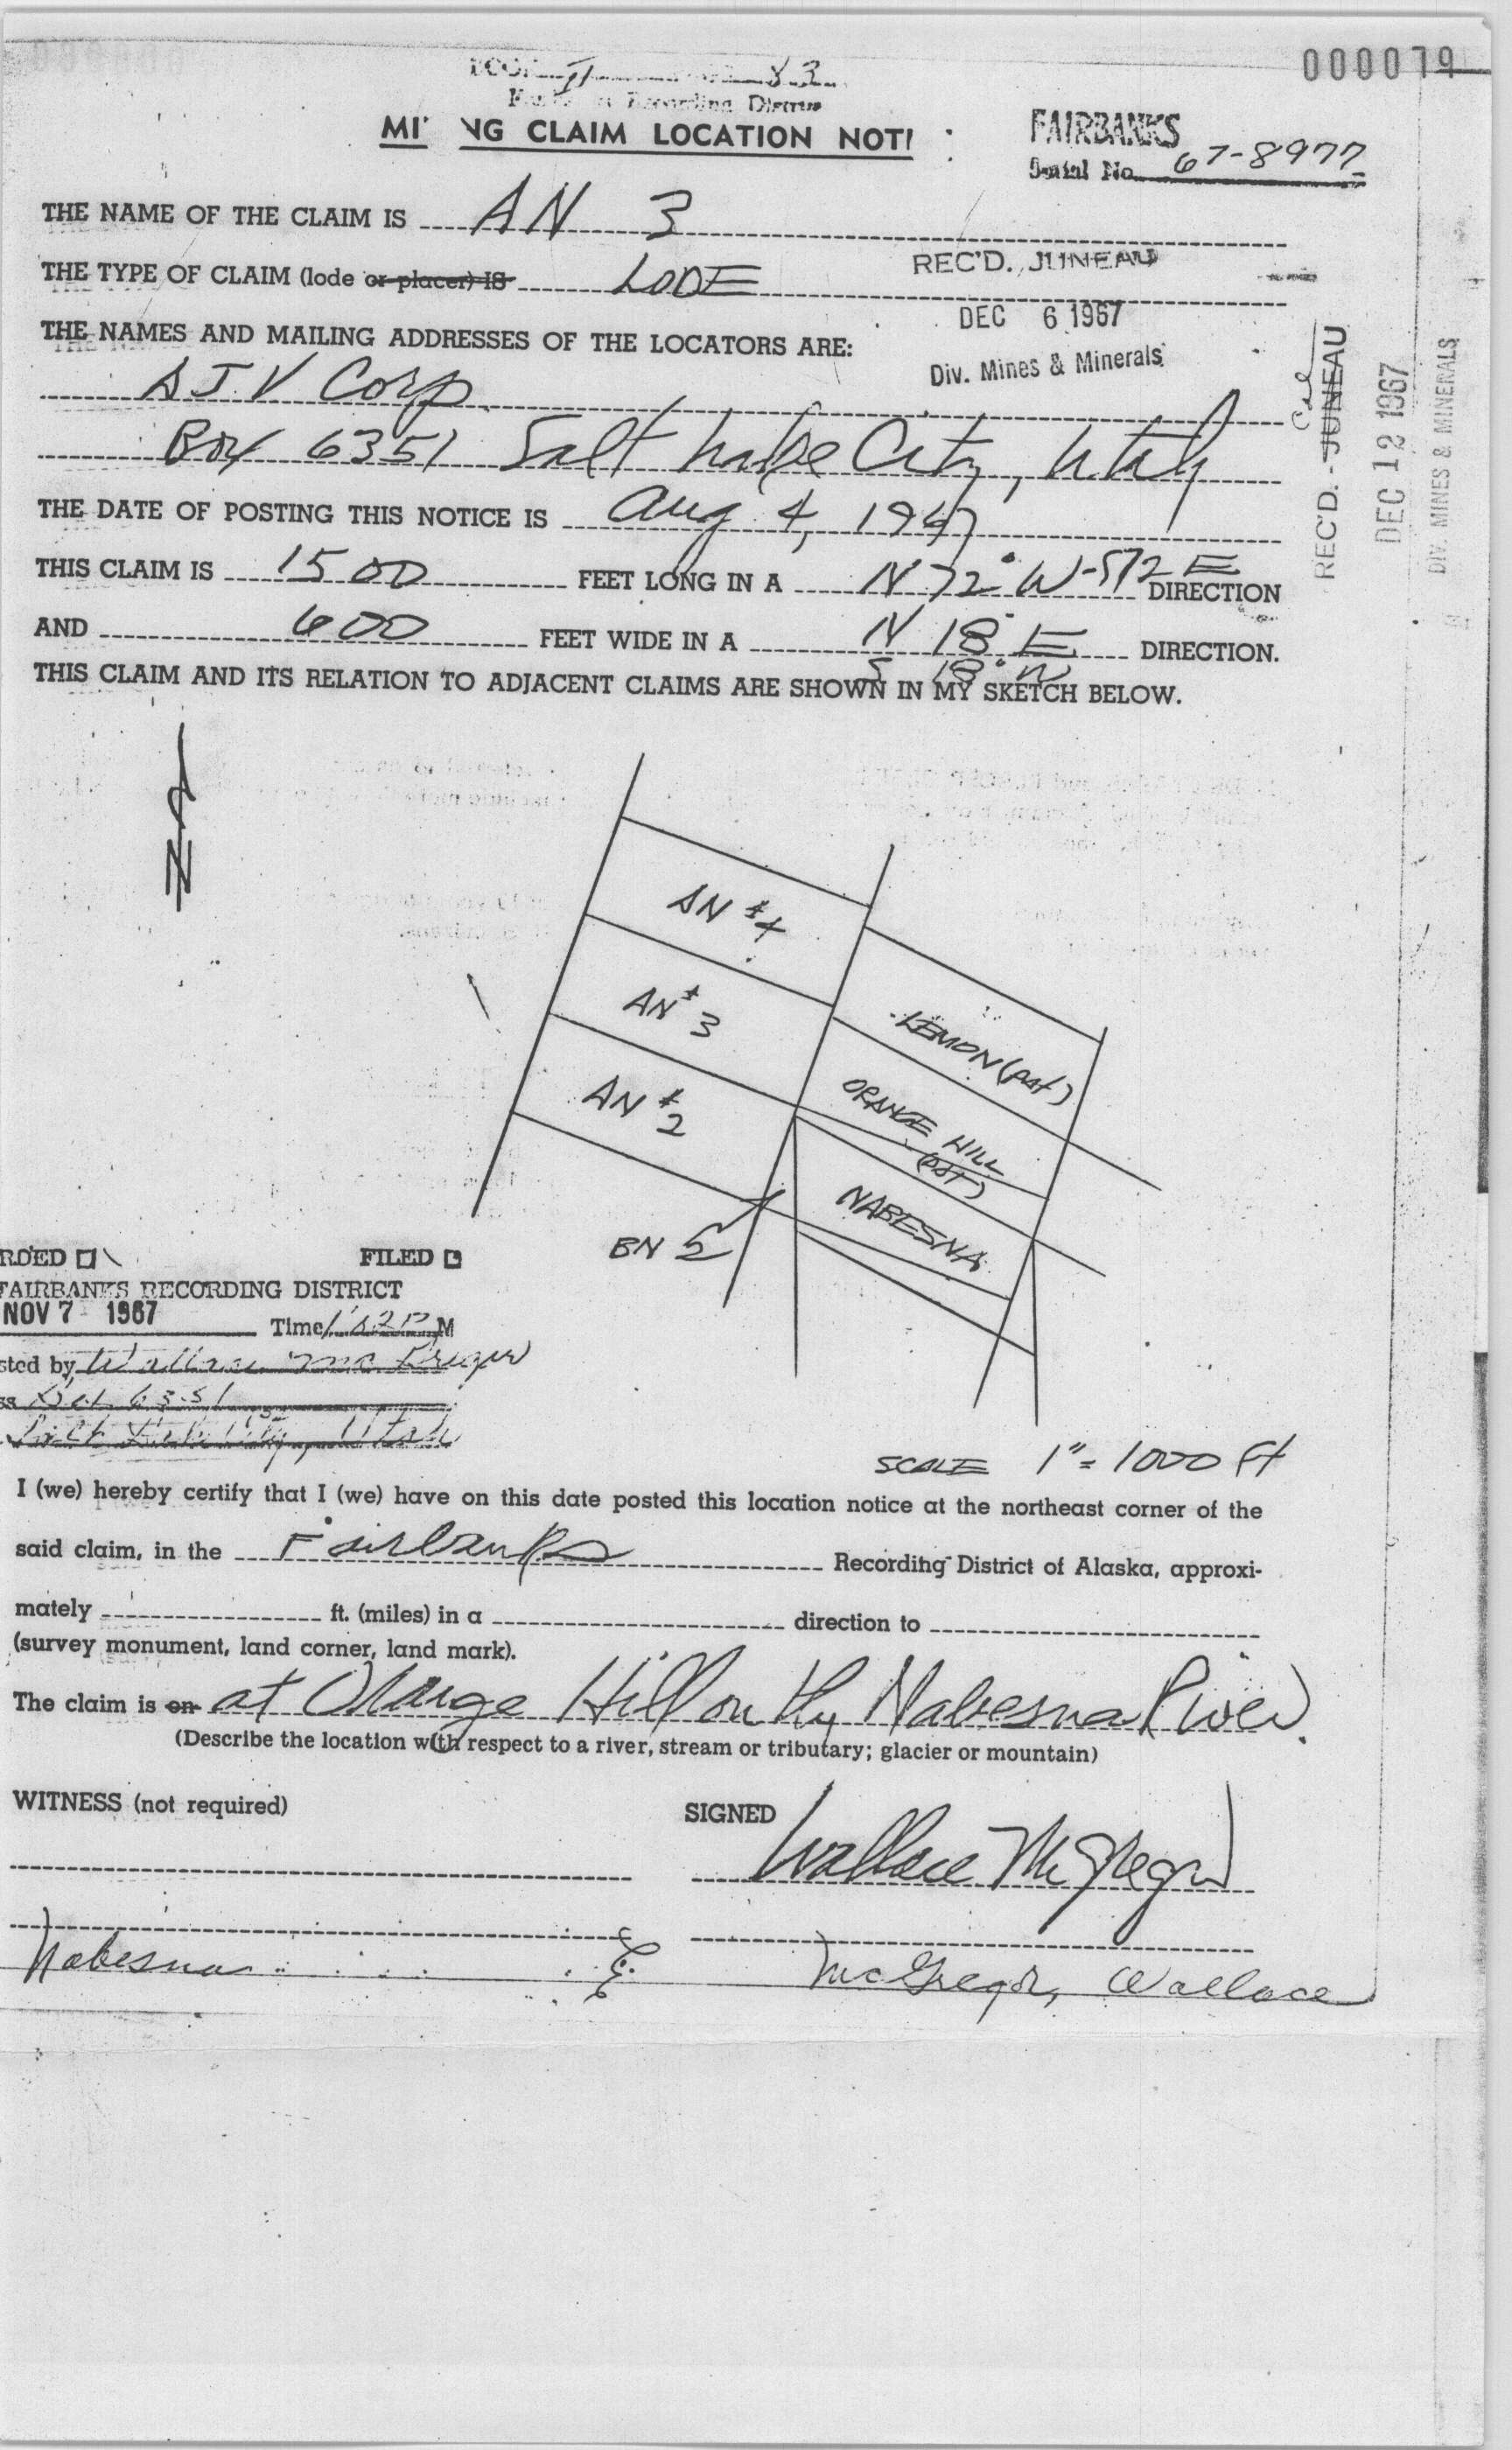 000079
83
Recording District
MI NG CLAIM LOCATION NOTI
FAIRBANKS
Serial No. 67-8977
THE NAME OF THE CLAIM IS AN 3
THE TYPE OF CLAIM (lode or placer) IS LODE
REC'D. JUNEAU
DEC 6 1967
Div. Mines & Minerals
THE NAMES AND MAILING ADDRESSES OF THE LOCATORS ARE:
AJV Corp.
Box 6351 Salt Lake City, Utah
REC'D. JUNEAU
DEC 12 1967
DIV. MINES & MINERALS
THE DATE OF POSTING THIS NOTICE IS Aug 4, 1967
THIS CLAIM IS 1500 FEET LONG IN A N 72° W-S72E DIRECTION
AND 600 FEET WIDE IN A N 18° E DIRECTION.
S 18° W
THIS CLAIM AND ITS RELATION TO ADJACENT CLAIMS ARE SHOWN IN MY SKETCH BELOW.
N
AN #4
AN #3
AN #2
LEMON (pat)
ORANGE HILL
(pat)
NABESNA
BN 5
RDED FILED
FAIRBANKS RECORDING DISTRICT
NOV 7 1967
Time M
sted by Wallace McGregor
ss Box 6351
Salt Lake City, Utah
SCALE 1" = 1000 ft
I (we) hereby certify that I (we) have on this date posted this location notice at the northeast corner of the
said claim, in the Fairbanks Recording District of Alaska, approxi-
mately ft. (miles) in a direction to
(survey monument, land corner, land mark).
The claim is on at Orange Hill on the Nabesna River.
(Describe the location with respect to a river, stream or tributary; glacier or mountain)
WITNESS (not required)
SIGNED Wallace McGregor
Nabesna
McGregor, Wallace